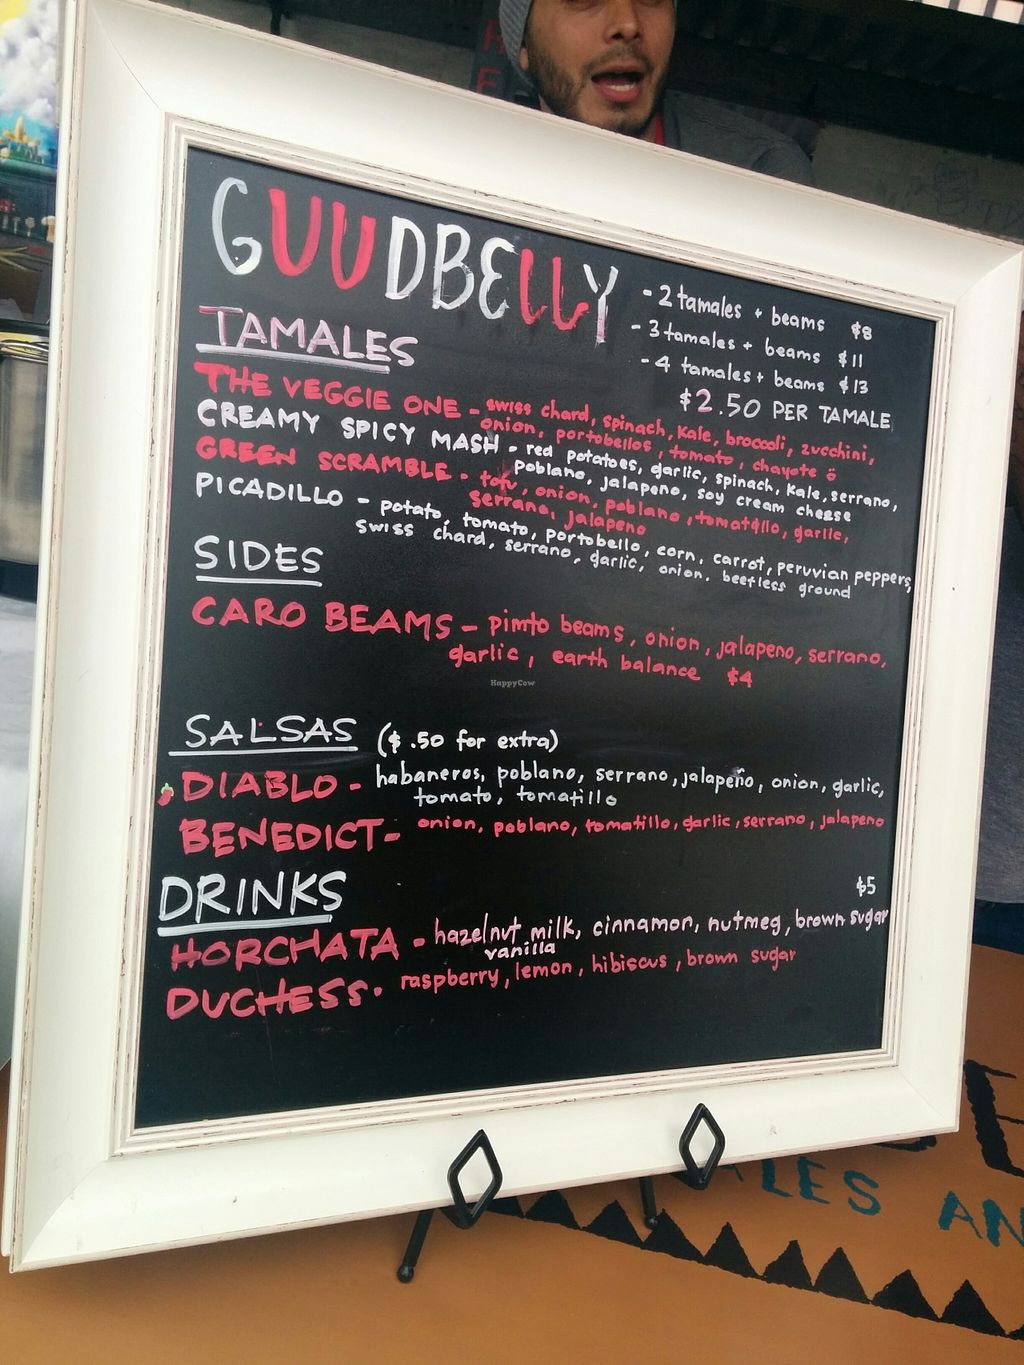 GUUDBELLY
- 2 tamales + beams $8
- 3 tamales + beams $11
- 4 tamales + beams $13
$2.50 PER TAMALE
TAMALES
THE VEGGIE ONE - swiss chard, spinach, kale, broccoli, zucchini,
onion, portobellos, tomato, chayote ö
CREAMY SPICY MASH - red potatoes, garlic, spinach, kale, serrano,
poblano, jalapeno, soy cream cheese
GREEN SCRAMBLE - tofu, onion, poblano, tomatillo, garlic,
serrano, jalapeno
PICADILLO - potato, tomato, portobello, corn, carrot, peruvian peppers,
swiss chard, serrano, garlic, onion, beefless ground
SIDES
CARO BEAMS - pimto beams, onion, jalapeno, serrano,
garlic, earth balance $4
HappyCow
SALSAS ($ .50 for extra)
DIABLO - habaneros, poblano, serrano, jalapeño, onion, garlic,
tomato, tomatillo
BENEDICT - onion, poblano, tomatillo, garlic, serrano, jalapeno
DRINKS $5
HORCHATA - hazelnut milk, cinnamon, nutmeg, brown sugar
vanilla
DUCHESS - raspberry, lemon, hibiscus, brown sugar
ALES AN